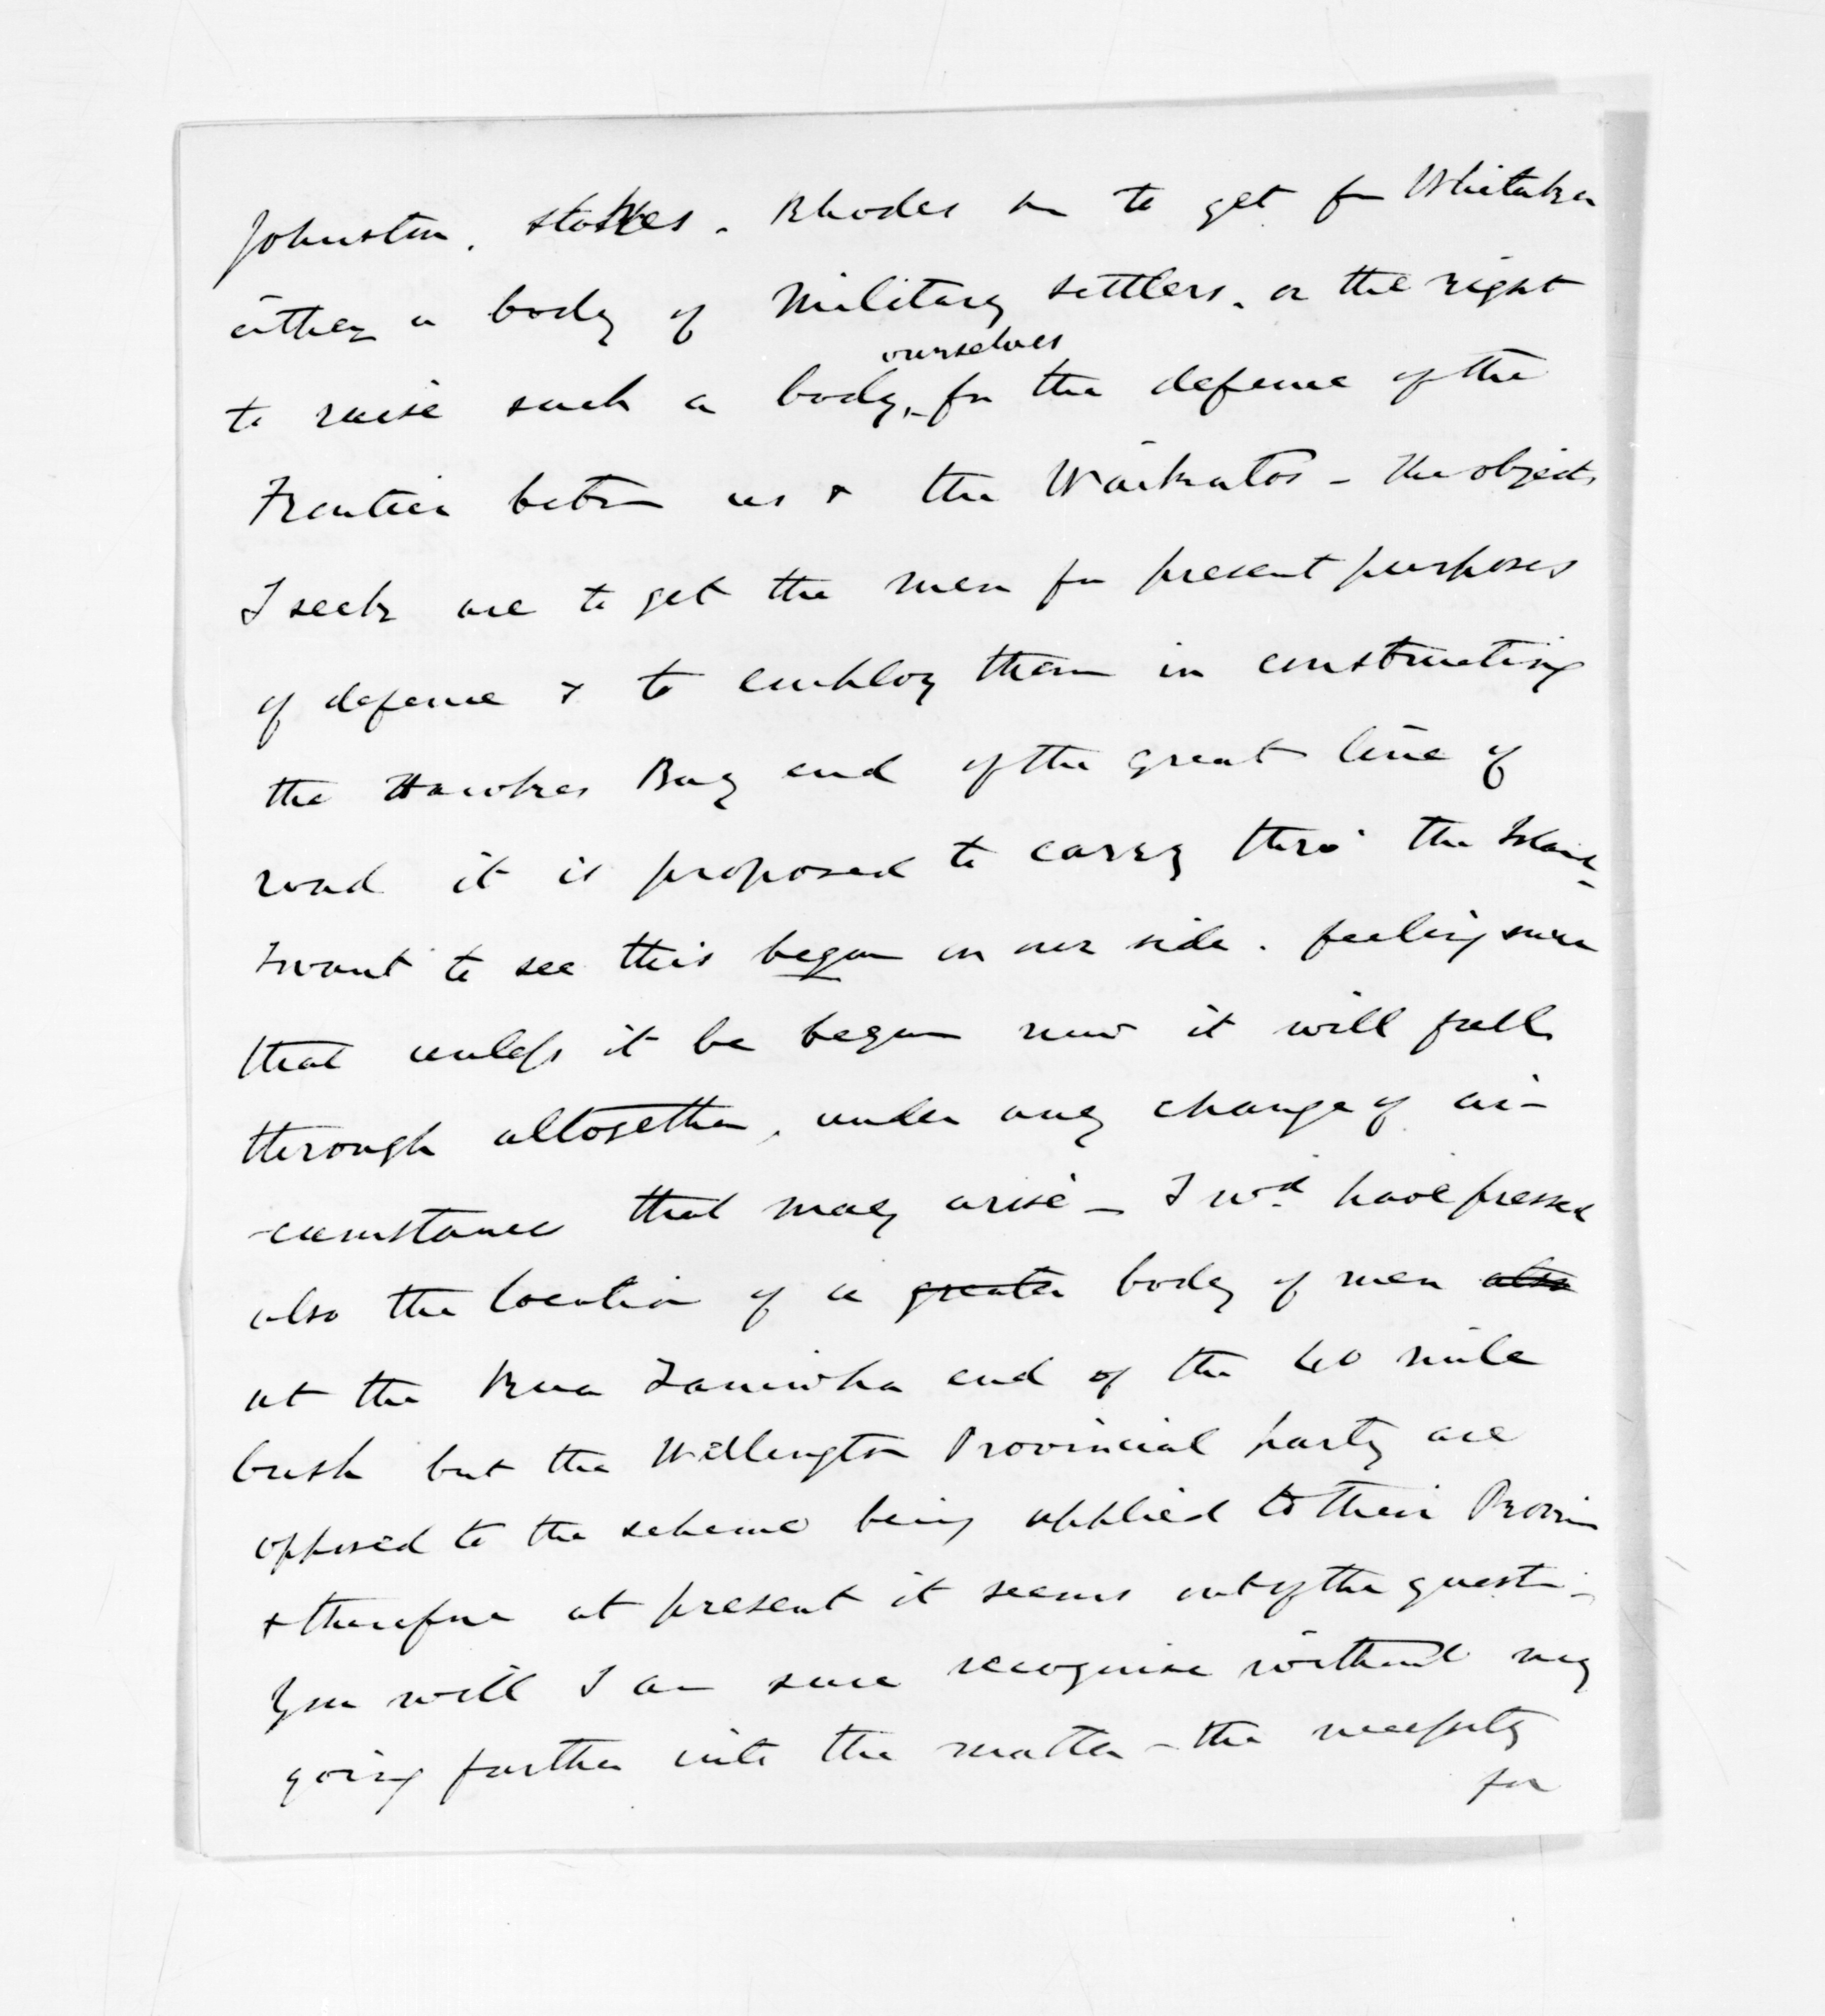 Johnston, Stokes. Rhodes &c to get fm Whitaker
either a body of Military settlers, or the right
ourselves
to raise such a body, for the defence of the
Frontier betn us & the Waikatos - The objects
I seek are to get the men for present purposes
of defence & to employ them in constructing
the Hawkes Bay end of the great line of
road it is proposed to carry thro' the Island -
I want to see this began on our side. feeling sure
that unless it be began now it will fall
through altogether, under any change of cir-
-cumstances that may arise - I wd. have pressed
also the location of a greater body of men also
at the Rua Taniwha end of the 40 mile
bush but the Wellington Provincial party are
opposed to the scheme being applied to their Provin
& therefore at present it seems out of the question -
You will I am sure recognise without my
going further into the matter - the necessity
for